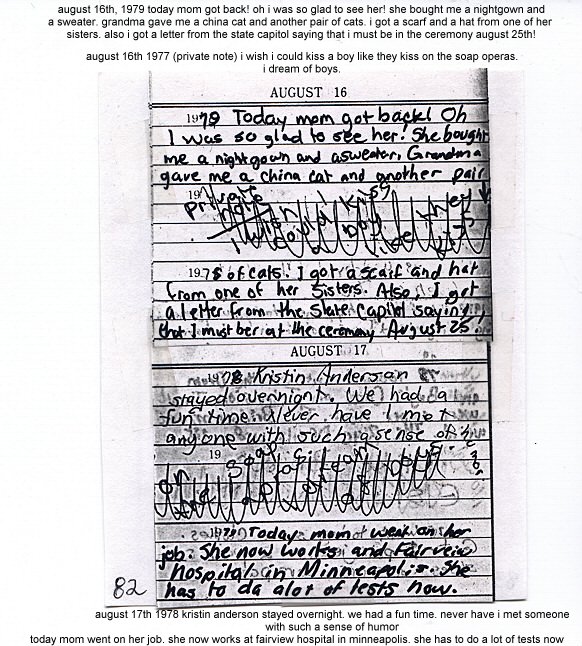 august 16th, 1979 today mom got back! oh i was so glad to see her! she bought me a nightgown and
a sweater. grandma gave me a china cat and another pair of cats. i got a scarf and a hat from one of her
sisters. also i got a letter from the state capitol saying that i must be in the ceremony august 25th!
august 16th 1977 (private note) i wish i could kiss a boy like they kiss on the soap operas.
i dream of boys.
AUGUST 16
1979 Today mom got back! Oh
I was so glad to see her! She bought
me a nightgown and a sweater. Grandma
gave me a china cat and another pair
19
Private
note
I wish I could kiss
1978 of cats. I got a scarf and hat
from one of her Sisters. Also, I got
a letter from the State Capitol saying
that I must ber at the ceremony August 25
AUGUST 17
1978 Kristin Anderson
stayed overnight. We had a
fun time. Never have I met
anyone with such a sense of
19
Today mom went on her
job. She now works and Fairveiw
hospital in Minneapolis. She
has to do alot of tests now.
82
august 17th 1978 kristin anderson stayed overnight. we had a fun time. never have i met someone
with such a sense of humor
today mom went on her job. she now works at fairview hospital in minneapolis. she has to do a lot of tests now